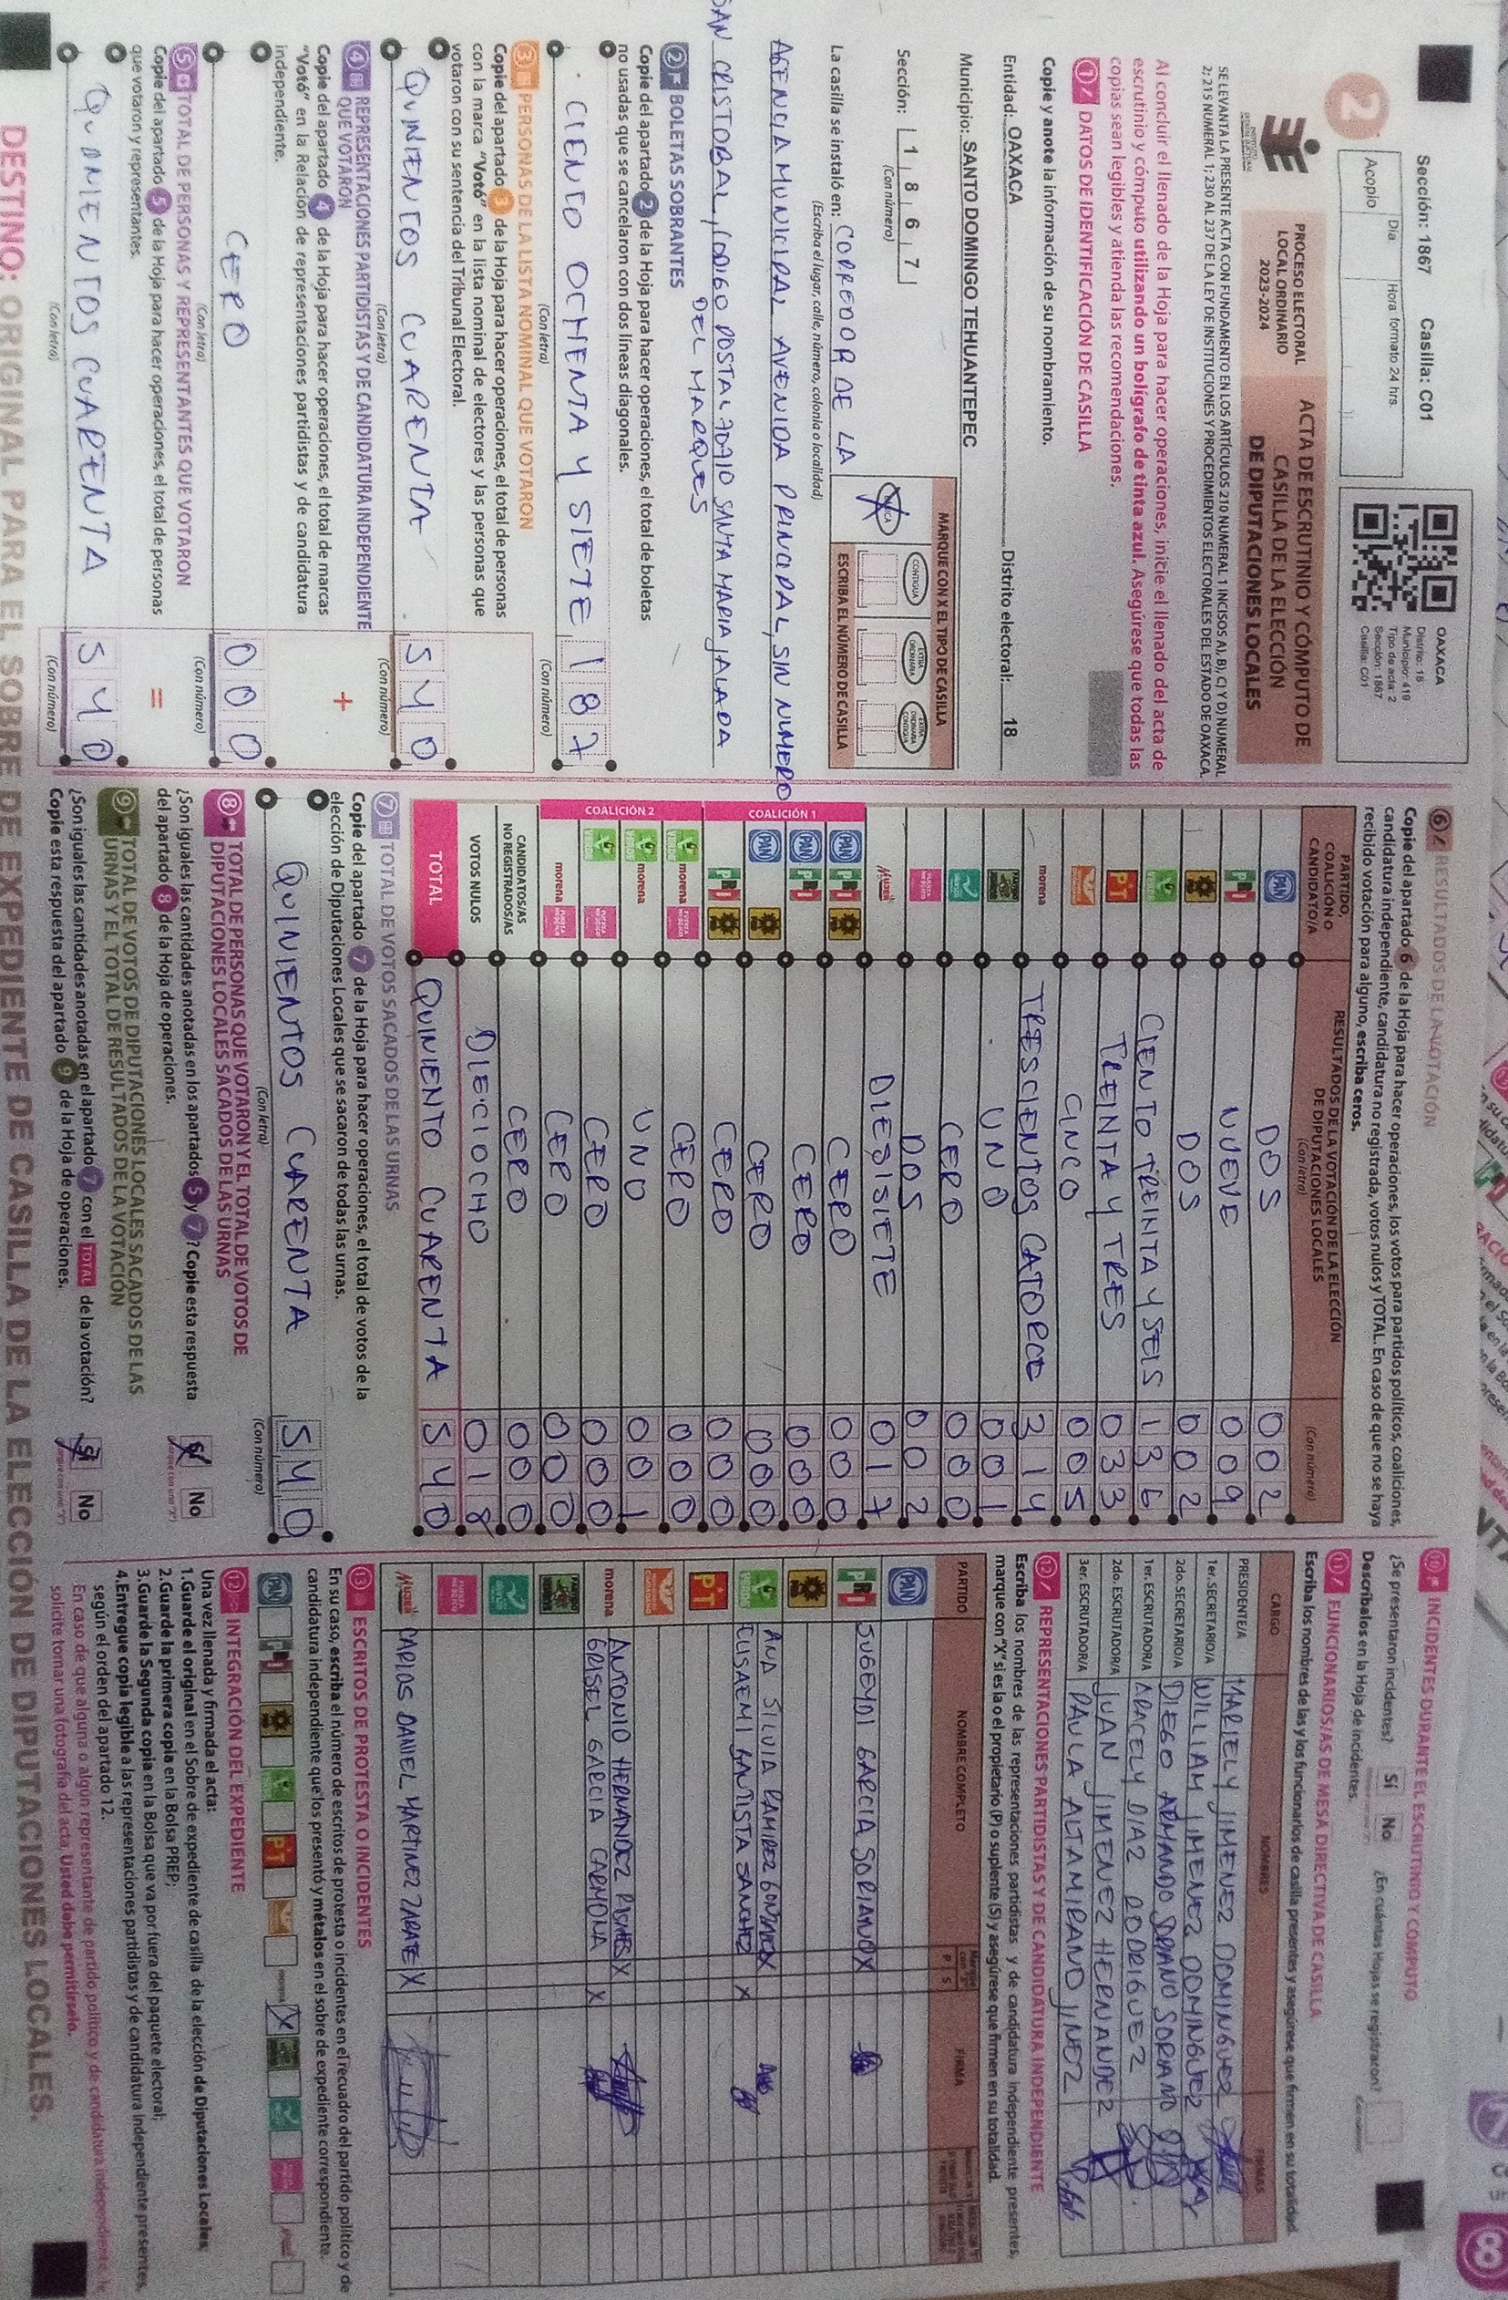 Sección: 1867 Casilla: C01
2
Acopio
Día
Hora formato 24 hrs.
OAXACA
Distrito: 18
Municipio: 419
Tipo de acta: 2
Sección: 1867
Casilla: C01
PROCESO ELECTORAL
LOCAL ORDINARIO
2023-2024
ACTA DE ESCRUTINIO Y CÓMPUTO DE
CASILLA DE LA ELECCIÓN
DE DIPUTACIONES LOCALES
SE LEVANTA LA PRESENTE ACTA CON FUNDAMENTO EN LOS ARTÍCULOS 210 NUMERAL 1 INCISOS A), B), C) Y D) NUMERAL
2; 215 NUMERAL 1; 230 AL 237 DE LA LEY DE INSTITUCIONES Y PROCEDIMIENTOS ELECTORALES DEL ESTADO DE OAXACA.
Al concluir el llenado de la Hoja para hacer operaciones, inicie el llenado del acta de
escrutinio y cómputo utilizando un bolígrafo de tinta azul. Asegúrese que todas las
copias sean legibles y atienda las recomendaciones.
1 DATOS DE IDENTIFICACIÓN DE CASILLA
Copie y anote la información de su nombramiento.
Entidad: OAXACA Distrito electoral: 18
Municipio: SANTO DOMINGO TEHUANTEPEC
Sección: 1 8 6 7
(Con número)
MARQUE CON X EL TIPO DE CASILLA
CONTIGUA
EXTRA ORDINARIA
EXTRA ORDINARIA CONTIGUA
ESCRIBA EL NÚMERO DE CASILLA
La casilla se instaló en: CORREDOR DE LA
(Escriba el lugar, calle, número, colonia o localidad)
AGENCIA MUNICIPAL AVENIDA PRINCIPAL, SIN NUMERO
SAN CRISTOBAL, CODIGO POSTAL 70710 SANTA MARIA JALAPA
DEL MARQUES
2 BOLETAS SOBRANTES
Copie del apartado 2 de la Hoja para hacer operaciones, el total de boletas
no usadas que se cancelaron con dos líneas diagonales.
CIENTO OCHENTA Y SIETE 1 8 7
(Con letra) (Con número)
3 PERSONAS DE LA LISTA NOMINAL QUE VOTARON
Copie del apartado 3 de la Hoja para hacer operaciones, el total de personas
con la marca "Votó" en la lista nominal de electores y las personas que
votaron con su sentencia del Tribunal Electoral.
QUINIENTOS CUARENTA 5 4 0
(Con letra) (Con número)
4 REPRESENTACIONES PARTIDISTAS Y DE CANDIDATURA INDEPENDIENTE
QUE VOTARON
Copie del apartado 4 de la Hoja para hacer operaciones, el total de marcas
"Votó" en la Relación de representaciones partidistas y de candidatura
independiente.
+
CERO 0 0 0
(Con letra) (Con número)
5 TOTAL DE PERSONAS Y REPRESENTANTES QUE VOTARON
Copie del apartado 5 de la Hoja para hacer operaciones, el total de personas
que votaron y representantes.
=
QUINIENTOS CUARENTA 5 4 0
(Con letra) (Con número)
6 RESULTADOS DE LA VOTACIÓN
Copie del apartado 6 de la Hoja para hacer operaciones, los votos para partidos políticos, coaliciones,
candidatura independiente, candidatura no registrada, votos nulos y TOTAL. En caso de que no se haya
recibido votación para alguno, escriba ceros.
PARTIDO,
COALICIÓN O
CANDIDATO/A
RESULTADOS DE LA VOTACIÓN DE LA ELECCIÓN
DE DIPUTACIONES LOCALES
(Con letra) (Con número)
PAN DOS 0 0 2
PRI NUEVE 0 0 9
DOS 0 0 2
VERDE CIENTO TREINTA Y SEIS 1 3 6
PT TREINTA Y TRES 0 3 3
CINCO 0 0 5
morena TRESCIENTOS CATORCE 3 1 4
UNO 0 0 1
CERO 0 0 0
DOS 0 0 2
MUJER DIESISIETE 0 1 7
COALICIÓN 1
PAN PRI CERO 0 0 0
PAN PRI CERO 0 0 0
PAN CERO 0 0 0
PRI CERO 0 0 0
COALICIÓN 2
VERDE morena CERO 0 0 0
VERDE morena UNO 0 0 1
VERDE CERO 0 0 0
morena CERO 0 0 0
CANDIDATOS/AS
NO REGISTRADOS/AS CERO 0 0 0
VOTOS NULOS DIECIOCHO 0 1 8
TOTAL QUINIENTO CUARENTA 5 4 0
7 TOTAL DE VOTOS SACADOS DE LAS URNAS
Copie del apartado 7 de la Hoja para hacer operaciones, el total de votos de la
elección de Diputaciones Locales que se sacaron de todas las urnas.
QUINIENTOS CUARENTA 5 4 0
(Con letra) (Con número)
8 TOTAL DE PERSONAS QUE VOTARON Y EL TOTAL DE VOTOS DE
DIPUTACIONES LOCALES SACADOS DE LAS URNAS
¿Son iguales las cantidades anotadas en los apartados 5 y 7? Copie esta respuesta
del apartado 8 de la Hoja de operaciones.
Sí No
9 TOTAL DE VOTOS DE DIPUTACIONES LOCALES SACADOS DE LAS
URNAS Y EL TOTAL DE RESULTADOS DE LA VOTACIÓN
¿Son iguales las cantidades anotadas en el apartado 7 con el TOTAL de la votación?
Copie esta respuesta del apartado 9 de la Hoja de operaciones.
Sí No
10 INCIDENTES DURANTE EL ESCRUTINIO Y CÓMPUTO
¿Se presentaron incidentes? Sí No ¿En cuántas Hojas se registraron?
Descríbalos en la Hoja de incidentes.
11 FUNCIONARIOS/AS DE MESA DIRECTIVA DE CASILLA
Escriba los nombres de las y los funcionarios de casilla presentes y asegúrese que firmen en su totalidad.
CARGO NOMBRES FIRMAS
PRESIDENTE/A MARIELY JIMENEZ DOMINGUEZ
1er. SECRETARIO/A WILLIAM JIMENEZ DOMINGUEZ
2do. SECRETARIO/A DIEGO ARMANDO SORIANO SORIANO
1er. ESCRUTADOR/A ARACELY DIAZ RODRIGUEZ
2do. ESCRUTADOR/A JUAN JIMENEZ HERNANDEZ
3er. ESCRUTADOR/A PAULA ALTAMIRANO JINEZ
12 REPRESENTACIONES PARTIDISTAS Y DE CANDIDATURA INDEPENDIENTE
Escriba los nombres de las representaciones partidistas y de candidatura independiente presentes,
marque con "X" si es la o el propietario (P) o suplente (S) y asegúrese que firmen en su totalidad.
PARTIDO NOMBRE COMPLETO P S FIRMA
PAN
PRI SUGEYDI GARCIA SORIANO X
VERDE ANA SILVIA RAMIREZ X
ELISAEMI BAUTISTA SANCHEZ X
PT
morena ANTONIO HERNANDEZ X
GRISEL GARCIA CARMONA X
MUJER CARLOS DANIEL MARTINEZ ZARATE X
13 ESCRITOS DE PROTESTA O INCIDENTES
En su caso, escriba el número de escritos de protesta o incidentes en el recuadro del partido político y de
candidatura independiente que los presentó y métalos en el sobre de expediente correspondiente.
PAN PRI VERDE PT morena X
12 INTEGRACIÓN DEL EXPEDIENTE
Una vez llenada y firmada el acta:
1. Guarde el original en el Sobre de expediente de casilla de la elección de Diputaciones Locales;
2. Guarde la primera copia en la Bolsa PREP;
3. Guarde la Segunda copia en la Bolsa que va por fuera del paquete electoral;
4. Entregue copia legible a las representaciones partidistas y de candidatura independiente presentes,
según el orden del apartado 12.
En caso de que alguna o algún representante de partido político y de candidatura independiente le
solicite tomar una fotografía del acta, Usted debe permitírselo.
DESTINO: ORIGINAL PARA EL SOBRE DE EXPEDIENTE DE CASILLA DE LA ELECCIÓN DE DIPUTACIONES LOCALES.
8